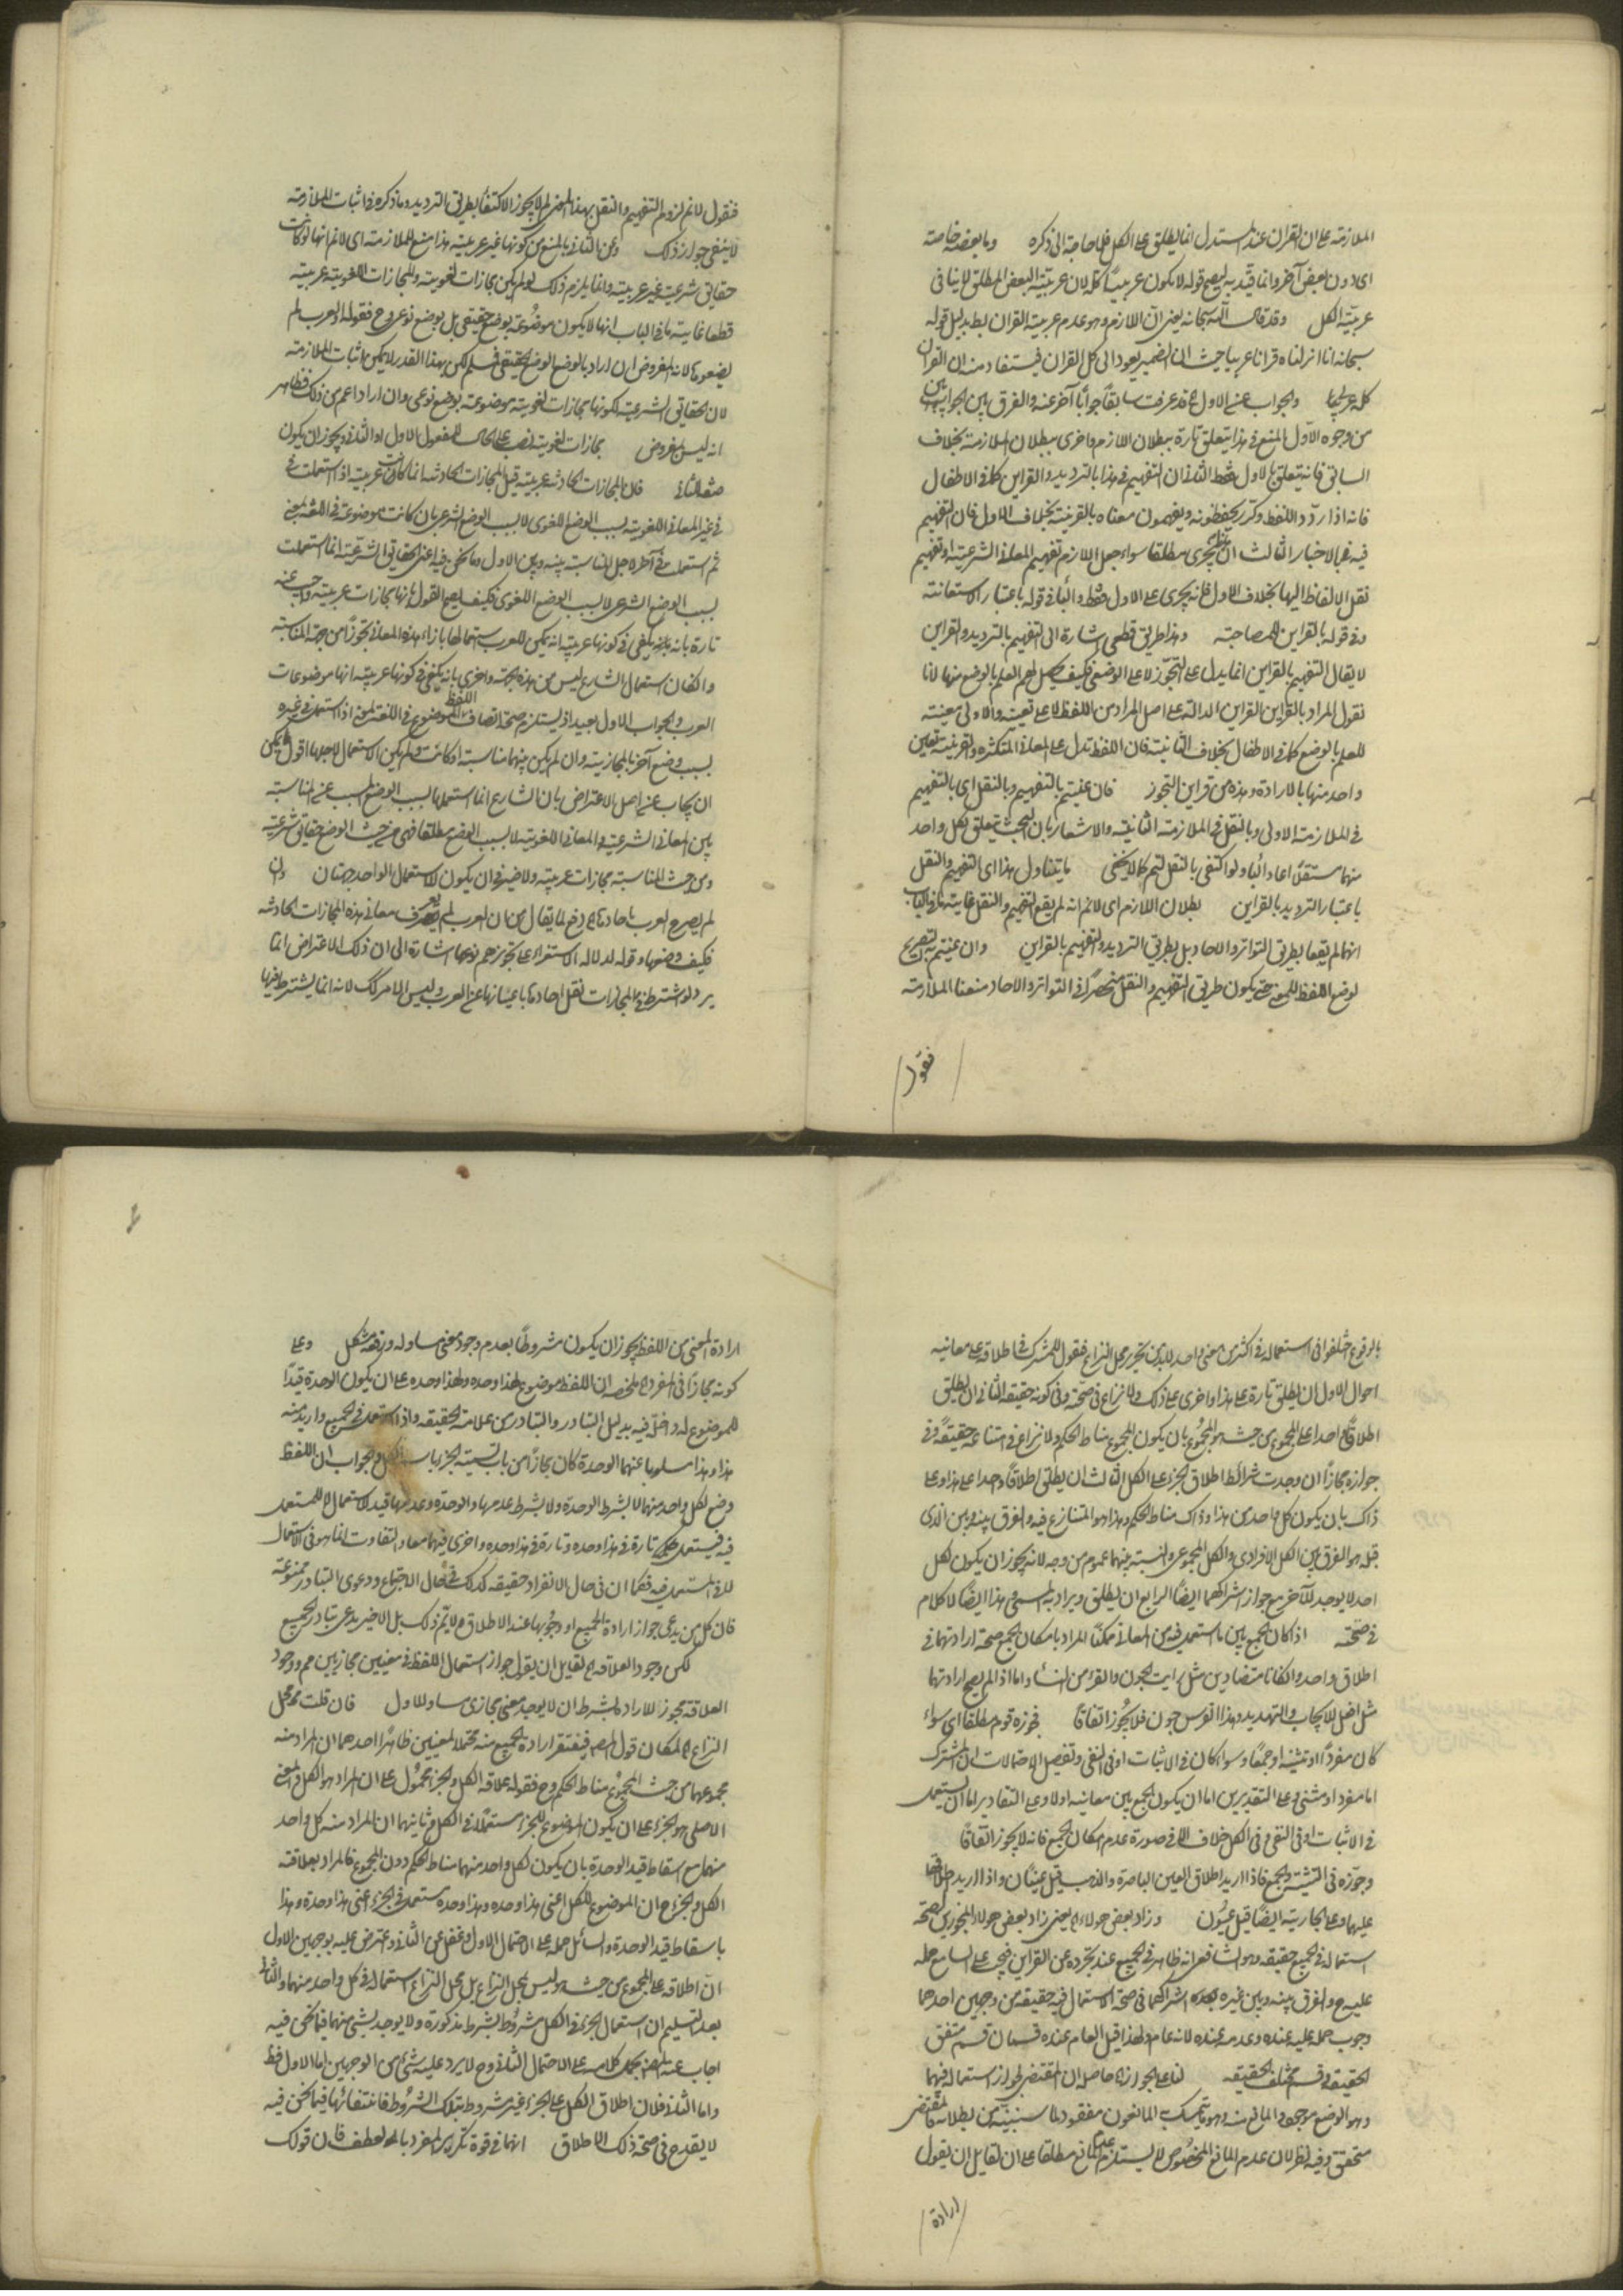 الملازمة على ان القران عند المستدل انما يطلق على الكل فلا حاجة الى ذكره وما بعضه خاصة
اى دون بعض آخر وانما قيد به ليصح قوله لا يكون عربيا كله لان عربية البعض المطلق لا ينافى
عربية الكل وقد قال الله سبحانه يعنى ان اللازم وهو عدم عربية القران بط بدليل قوله
سبحانه انا انزلناه قرانا عربيا حيث ان الضمير يعود الى كل القران فيستفاد منه ان القران
كله عربى والجواب عن الاول قد عرفت سابقا جوابا آخر عنه والفرق بين الجوابين
من وجوه الاول المنع فى هذا يتعلق تارة ببطلان اللازم واخرى ببطلان الملازمة بخلاف
السابق فانه يتعلق بالاول فقط الثانى ان التفهيم فى هذا بالترديد والقراين كما فى الاطفال
فانه اذا ردد اللفظ وكرر يحفظونه ويفهمون معناه بالقرينة بخلاف الاول فان التفهيم
فيه بالاخبار الثالث ان هذا يجرى مطلقا سواء جعل اللازم تفهيم المعانى الشرعية او تفهيم
نقل الالفاظ اليها بخلاف الاول فانه يجرى على الاول فقط والباء فى قوله باعتبار الاستعانة
وفى قوله بالقراين للمصاحبة وهذا طريق قطعى اشارة الى التفهيم بالترديد والقراين
لا يقال التفهيم بالقراين انما يدل على التجوز لا على الوضع فكيف يحصل لهم العلم بالوضع منها لانا
نقول المراد بالقراين القراين الدالة على اصل المراد من اللفظ لا على تعينه والاولى معينة
للعلم بالوضع كما فى الاطفال بخلاف الثانية فان اللفظ تدل على المعانى المتكثرة والقرينة تعين
واحد منها بالارادة وهذه من قراين التجوز فان عنيتم بالتفهيم وبالنقل اى بالتفهيم
فى الملازمة الاولى وبالنقل فى الملازمة الثانية والاشعار بان البحث يتعلق بكل واحد
منهما مستقلا اعاد الباء ولو اكتفى بالنقل لتم كما لا يخفى ما يتناول هذا اى التفهيم والنقل
باعتبار الترديد بالقراين بطلان اللازم اى لانم انه لم يقع التفهيم والنقل غاية ما فى الباب
انهما لم يقعا بطريق التواتر والاحاد بل بطريق الترديد والتفهيم بالقراين وان عنيتم به التصريح
لوضع اللفظ للمعنى حتى يكون طريق التفهيم والنقل منحصرا فى التواتر والاحاد منعنا الملازمة
فنقول
فنقول لانم لزوم التفهيم والنقل بهذا المعنى لم لا يجوز الاكتفاء بطريق الترديد وما ذكره فى اثبات الملازمة
لا ينفى جواز ذلك وعن الثانى بالمنع من كونها غير عربية هذا منع للملازمة اى لانم انها لو كانت
حقايق شرعية غير عربية وانما يلزم ذلك لو لم يكن مجازات لغوية والمجازات اللغوية عربية
قطعا غاية ما فى الباب انها لا يكون موضوعة بوضع حقيقى بل بوضع نوعى وح فقوله او العرب لم
يضعوها لانه المفروض ان اراد بالوضع الوضع الحقيقى فسلم لكن بهذا القدر لا يمكن اثبات الملازمة
لان الحقايق الشرعية لكونها مجازات لغوية موضوعة بوضع نوعى وان اراد اعم من ذلك فظاهر
انه ليس المفروض مجازات لغوية نصب على الحال للمفعول الاول او الثانى ويجوز ان يكون
صفة للثانى فان المجازات الحادثة عربية قيل المجازات الحادثة انما كانت عربية اذا استعملت فى
فى غير المعانى اللغوية بسبب الوضع اللغوى لا بسبب الوضع الشرعى بان كانت موضوعة فى اللغة لمعنى
ثم استعملت فى آخر لاجل المناسبة بينه وبين الاول وما نحن فيه اعنى الحقايق الشرعية انما استعملت
بسبب الوضع الشرعى لا بسبب الوضع اللغوى فكيف يصح القول بانها مجازات عربية واجيب عنه
تارة بانه يكفى فى كونها عربية انه يمكن للعرب استعمالها بازاء هذه المعانى تجوزا من جهة المناسبة
وان كان استعمال الشارع ليس من هذه الجهة واخرى بانه يكفى فى كونها عربية انها موضوعات
العرب والجواب الاول بعيد اذ يستلزم صحة اتصاف اللفظ الموضوع فى اللغة لمعنى اذا استعمل فى غيره
بسبب وضع آخر بالمجازية وان لم يكن بينهما مناسبة او كانت ولم يكن الاستعمال لاجلها اقول ويمكن
ان يجاب عن اصل الاعتراض بان الشارع انما استعملها بسبب الوضع المسبب عن المناسبة
بين المعانى الشرعية والمعانى اللغوية لا بسبب الوضع مطلقا فهى من حيث الوضع حقايق شرعية
ومن حيث المناسبة مجازات عربية ولا ضير فى ان يكون للاستعمال الواحد جهتان وان
لم يصرح العرب باحادها دفع لما يقال من ان العرب لم يعرف معانى هذه المجازات الحادثة
فكيف وضعها وقوله لدلالة الاستقراء على تجويزهم نوعها اشارة الى ان ذلك الاعتراض انما
يرد لو اشترط فى المجازات نقل احادها باعيانها عن العرب وليس الامر كك لانه انما يشترط فيها
بالوقوع اختلفوا فى استعماله فى اكثر من معنى واحد لابد من تحرير محل النزاع فنقول للمشترك فى اطلاقه على معانيه
احوال الاول ان يطلق تارة على هذا واخرى على ذلك ولا نزاع فى صحته وفى كونه حقيقة الثانى ان يطلق
اطلاقا واحدا على المجموع من حيث هو المجموع بان يكون المجموع مناط الحكم ولا نزاع فى امتناعه حقيقة وفى
جوازه مجازا ان وجدت شرائط اطلاق الجزء على الكل الثالث ان يطلق اطلاقا واحدا على هذا وعلى
ذاك بان يكون كل واحد من هذا وذاك مناط الحكم وهذا هو المتنازع فيه والفرق بينه وبين الذى
قبله هو الفرق بين الكل الافرادى والكل المجموعى والنسبة بينهما عموم من وجه لانه يجوز ان يكون لكل
احد لا يوجد للآخر مع جواز اشراكهما ايضا الرابع ان يطلق ويراد به المسمى وهذا ايضا لا كلام
فى صحته اذا كان الجمع بين ما استعمل فيه من المعانى ممكنا المراد بامكان الجمع صحة ارادتهما فى
اطلاق واحد وان كانا متضادين مثل رايت الجون والقرء من النساء واما اذا لم يصح ارادتهما
مثل افعل للايجاب والتهديد وهذا الفرس جون فلا يجوز اتفاقا فجوزه قوم مطلقا اى سواء
كان مفردا او تثنية او جمعا وسواء كان فى الاثبات او فى النفى وتفصيل الاحتمالات ان المشترك
اما مفرد او مثنى وعلى التقديرين اما ان يكون الجمع بين معانيه اولا وعلى التقادير اما ان يستعمل
فى الاثبات او فى النفى وفى الكل خلاف الا فى صورة عدم امكان الجمع فانه لا يجوز اتفاقا
وجوزه فى التثنية والجمع فاذا اريد اطلاق العين الباصرة والذهب قيل عينان واذا اريد اطلاقها
عليهما وعلى الجارية ايضا قيل عيون وزاد بعض هولاء يعنى زاد بعض هولاء المجوزين صحة
استعماله فى الجميع حقيقة وهو الشافعى انه ظاهر فى الجميع عند تجرده عن القراين فيجب على السامع حمله
عليه ح والفرق بينه وبين غيره بعد اشراكهما فى صحة الاستعمال فيه حقيقة من وجهين احدهما
وجوب حمله عليه عنده وعدمه عنده لانه عام ولهذا قيل العام عنده قسمان قسم متفق
الحقيقة وقسم مختلف الحقيقة لنا على الجواز حاصله ان المقتضى لجواز استعماله فيهما
وهو الوضع موجود والمانع منه وهو ما يتمسك به المانعون مفقود لما سنبينه من بطلانه فالمقتضى
متحقق وفيه نظر لان عدم المانع المخصوص لا يستلزم عدم المانع مطلقا على ان لقايل ان يقول
ارادة
ارادة المعنى من اللفظ يجوز ان يكون مشروطا بعدم وجود معنى مساو له ودفعه مشكل وعلى
كونه مجازا فى المفرد ملخصه ان اللفظ موضوع لهذا وحده ولهذا وحده على ان يكون الوحدة قيدا
للموضوع له داخلا فيه بدليل التبادر والتبادر من علامة الحقيقة واذا استعمل فى الجميع واريد منه
هذا وهذا مسلوبا عنهما الوحدة كان مجازا من باب تسمية الجزء باسم الكل والجواب ان اللفظ
وضع لكل واحد منهما لا بشرط الوحدة ولا بشرط عدمها والوحدة وعدمها قيد الاستعمال لا للمستعمل
فيه فيستعمل تارة فى هذا وحده وتارة فى هذا وحده واخرى فيهما معا والتفاوت انما هو فى الاستعمال
لا فى المستعمل فيه فكما ان فى حال الانفراد حقيقة كذلك فى حال الاجتماع ودعوى التبادر ممنوعة
فان كل من يدعى جواز ارادة الجميع او وجوبها عند الاطلاق لا يتم ذلك بل الاخير يدعى تبادر الجميع
لكن وجود العلاقة لقايل ان يقول جواز استعمال اللفظ فى معنيين مجازيين مم ووجود
العلاقة مجوز للارادة بشرط ان لا يوجد معنى مجازى مساو للاول فان قلت محل
النزاع لما كان قول المص فيفتقر ارادة الجميع منه محتملا لمعنيين ظاهرا احدهما ان المراد منه
مجموعهما من حيث المجموع مناط الحكم وح فقوله علاقة الكل والجزء محمول على ان المراد هو الكل والمعنى
الاصلى هو الجزء على ان يكون الموضوع للجزء مستعملا فى الكل وثانيهما ان المراد منه كل واحد
منهما مع اسقاط قيد الوحدة بان يكون لكل واحد منهما مناط الحكم دون المجموع فالمراد بعلاقة
الكل والجزء ح ان الموضوع للكل اعنى هذا وحده وهذا وحده مستعمل فى الجزء اعنى هذا وحده وهذا
باسقاط قيد الوحدة والسائل حمله على الاحتمال الاول وغفل عن الثانى واعترض عليه بوجهين الاول
ان اطلاقه على المجموع من حيث هو ليس محل النزاع بل محل النزاع استعماله فى كل واحد منهما والثانى
بعد التسليم ان استعمال الجزء فى الكل مشروط بشرط مذكورة ولا يوجد شىء منهما فيما نحن فيه
اجاب عنه المص بحمل كلامه على الاحتمال الثانى وح لا يرد عليه شىء من الوجهين اما الاول فظ
واما الثانى فلان اطلاق الكل على الجزء غير مشروط بتلك الشروط فانتفائها فيما نحن فيه
لا يقدح فى صحة ذلك الاطلاق انهما فى قوة تكرير المفرد بالعطف فان قولك